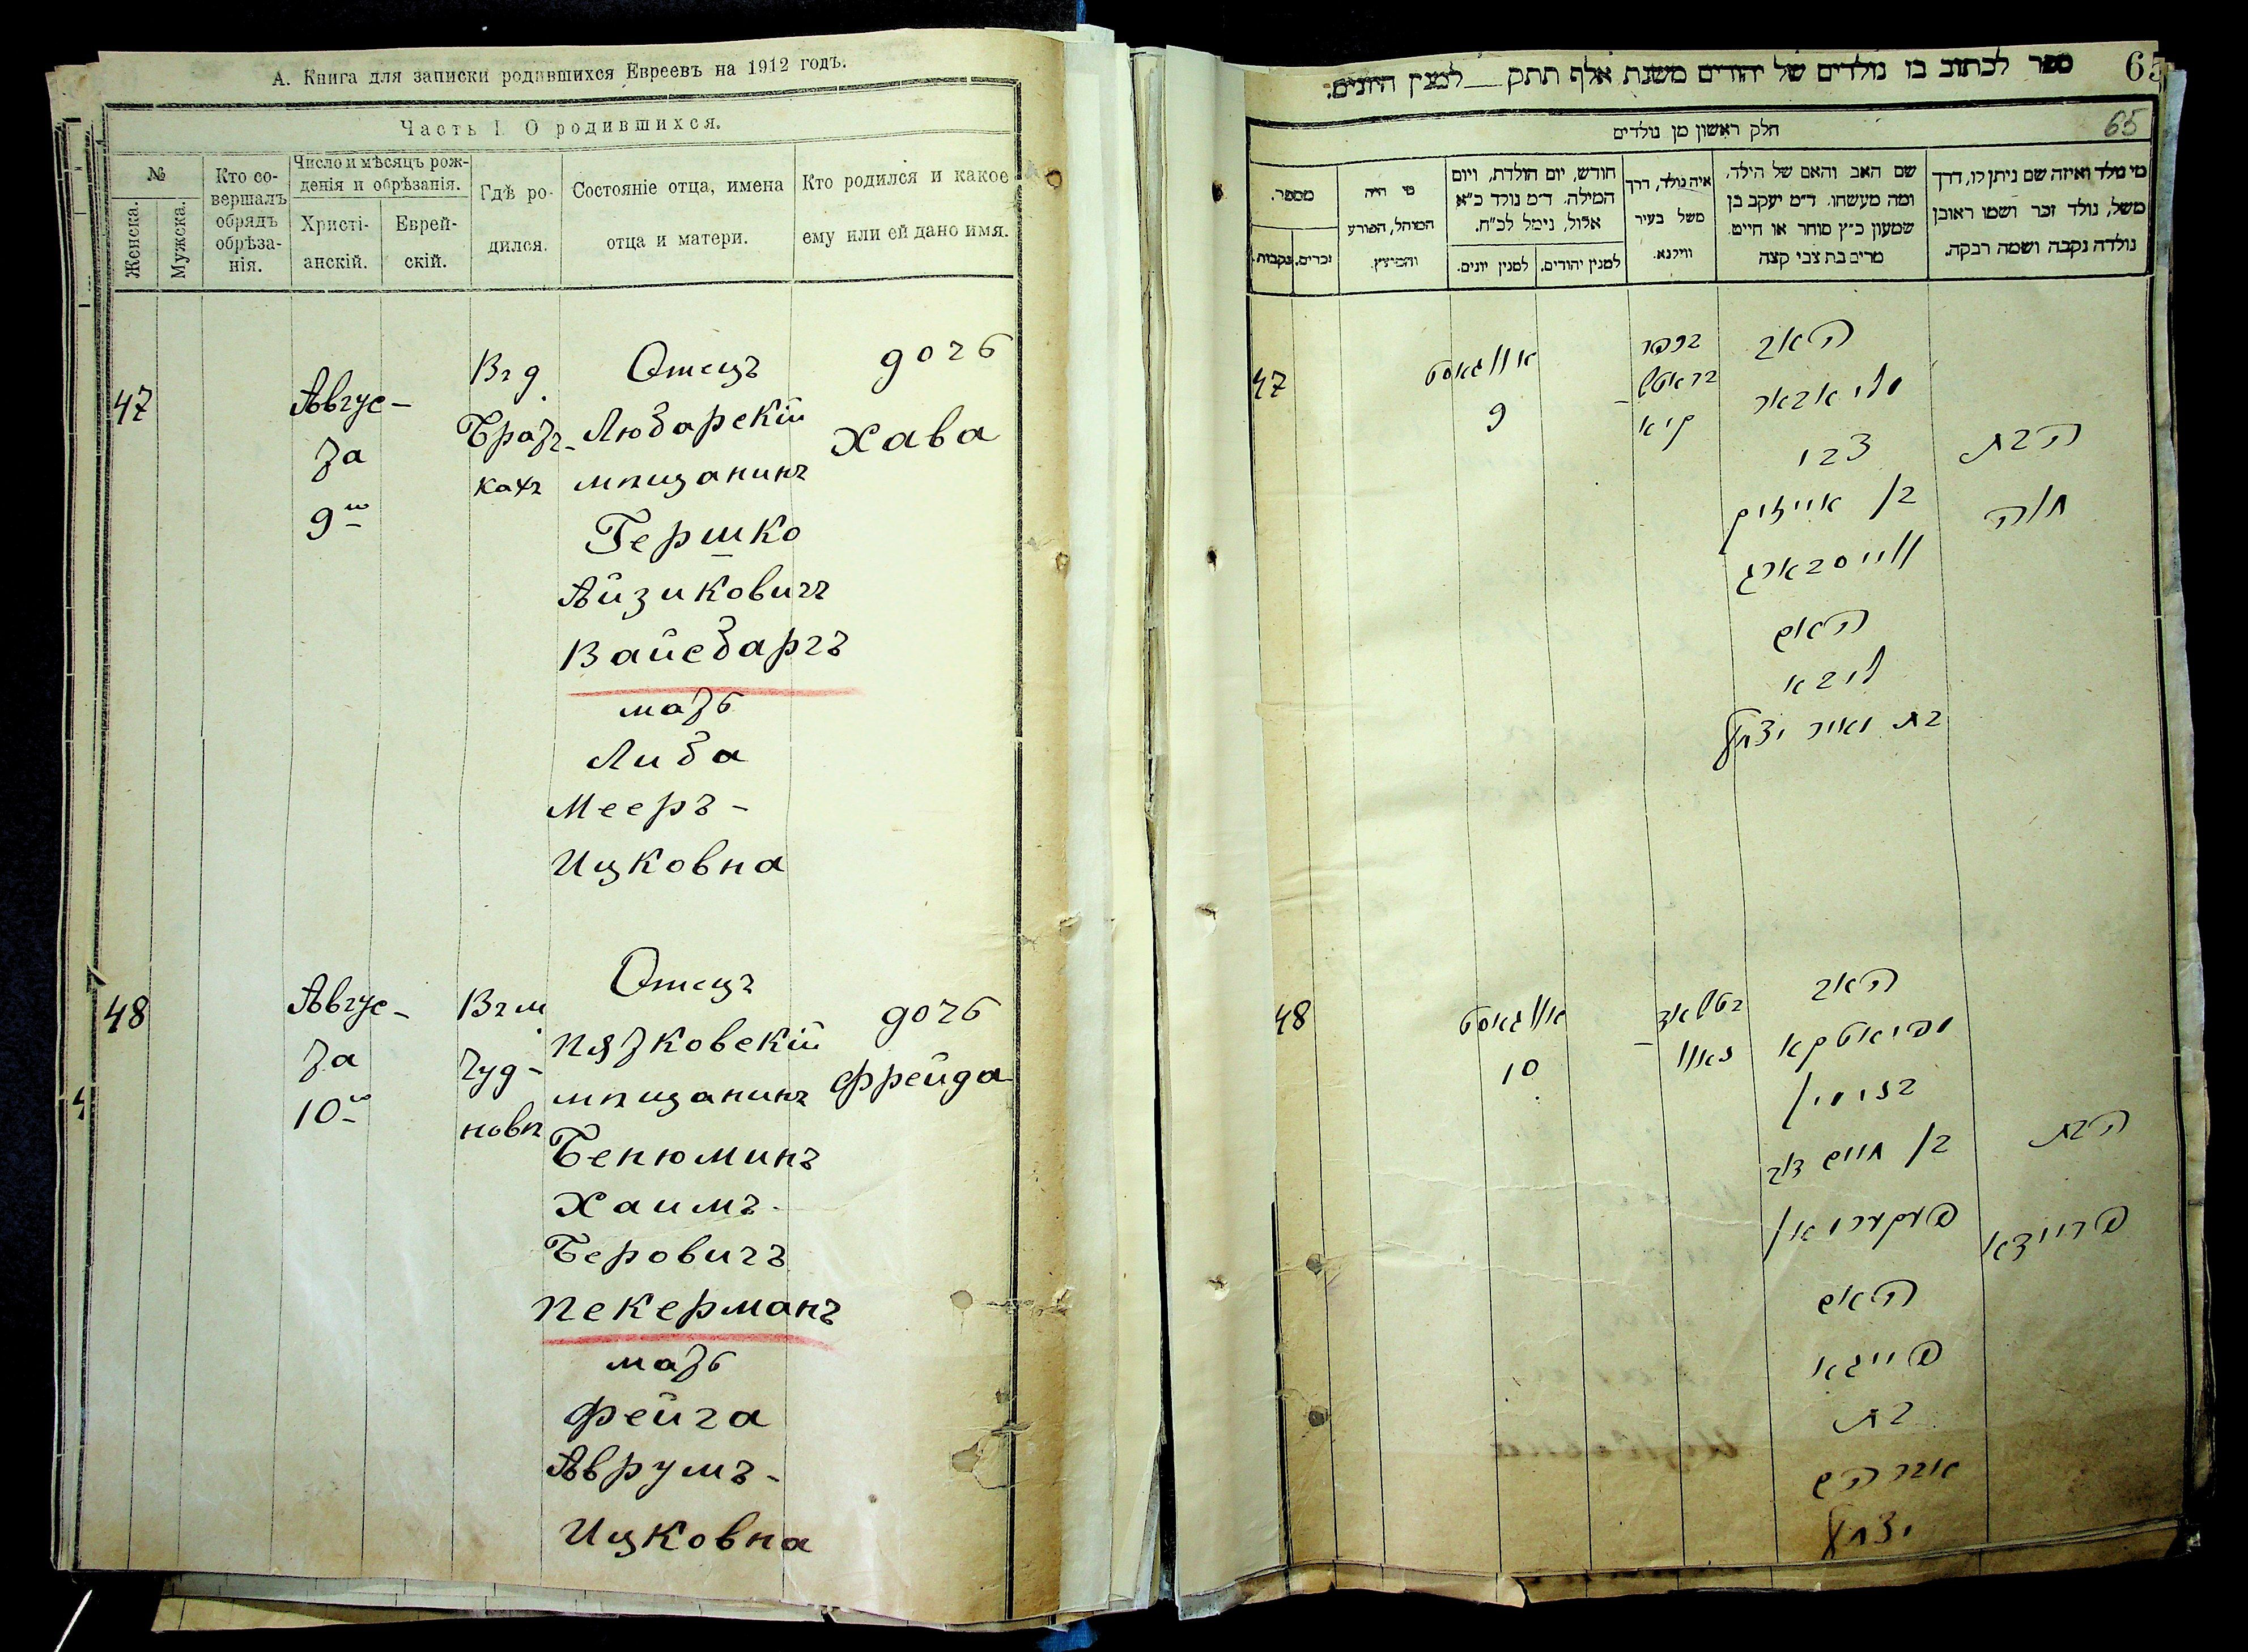 А. Книга для записки родившихся Евреевъ на 1912 годъ.
Часть I О родившихся.
№
Женска.
Мужска.
Кто со-
вершалъ
обрядъ
обрѣза-
нія.
Число и мѣсяцъ рож-
денія и обрѣзанія.
Христі-
анскій.
Еврей-
скій.
Гдѣ ро-
дился.
Состояніе отца, имена
отца и матери.
Кто родился и какое
ему или ей дано имя.
47
Авгус-
та
9го
Въ д.
Брат-
кахъ
Отецъ
Любарскій
мѣщанинъ
Гершко
Айзиковичъ
Вайсбаргъ
мать
Либа
Мееръ-
Ицковна
дочь
Хава
48
Авгус-
та
10го
Въ м.
Чуд-
новѣ
Отецъ
Пятковскій
мѣщанинъ
Бенюминъ
Хаимъ-
Беровичъ
Пекерманъ
мать
Фейга
Аврумъ-
Ицковна
дочь
Фрейда
ספר לכתוב בו נולדים של יהודים משנת אלף תתק למנין היונים.
65
חלק ראשון מן נולדים
65
מי נולד ואיזה שם ניתן לו, דרך
משל, נולד זכר ושמו ראובן
נולדה נקבה ושמה רבקה.
שם האב והאם של הילד.
ומה מעשהו. ד״מ יעקב בן
שמעון כ״ץ סוחר או חייט.
מרים בת צבי קצה
איה נולד, דרך
משל בעיר
ווילנא.
חודש, יום הולדת, ויום
המילה. ד״מ נולד כ״א
אלול, נימל לכ״ח.
למנין יהודים.
למנין יונים.
מי היה
המוהל, הפורע
והמוצץ.
מספר.
זכרים.
נקבות.
47
אווגוסט
9
האב
צבי
בן אייזיק
ווייסבארג
האם
ליבא
בת מאיר יצחק
הבת
חוה
48
אווגוסט
10
האב
בנימין
בן חיים דוב
פעקערמאן
האם
פייגא
בת
אברהם
יצחק
הבת
פריידא